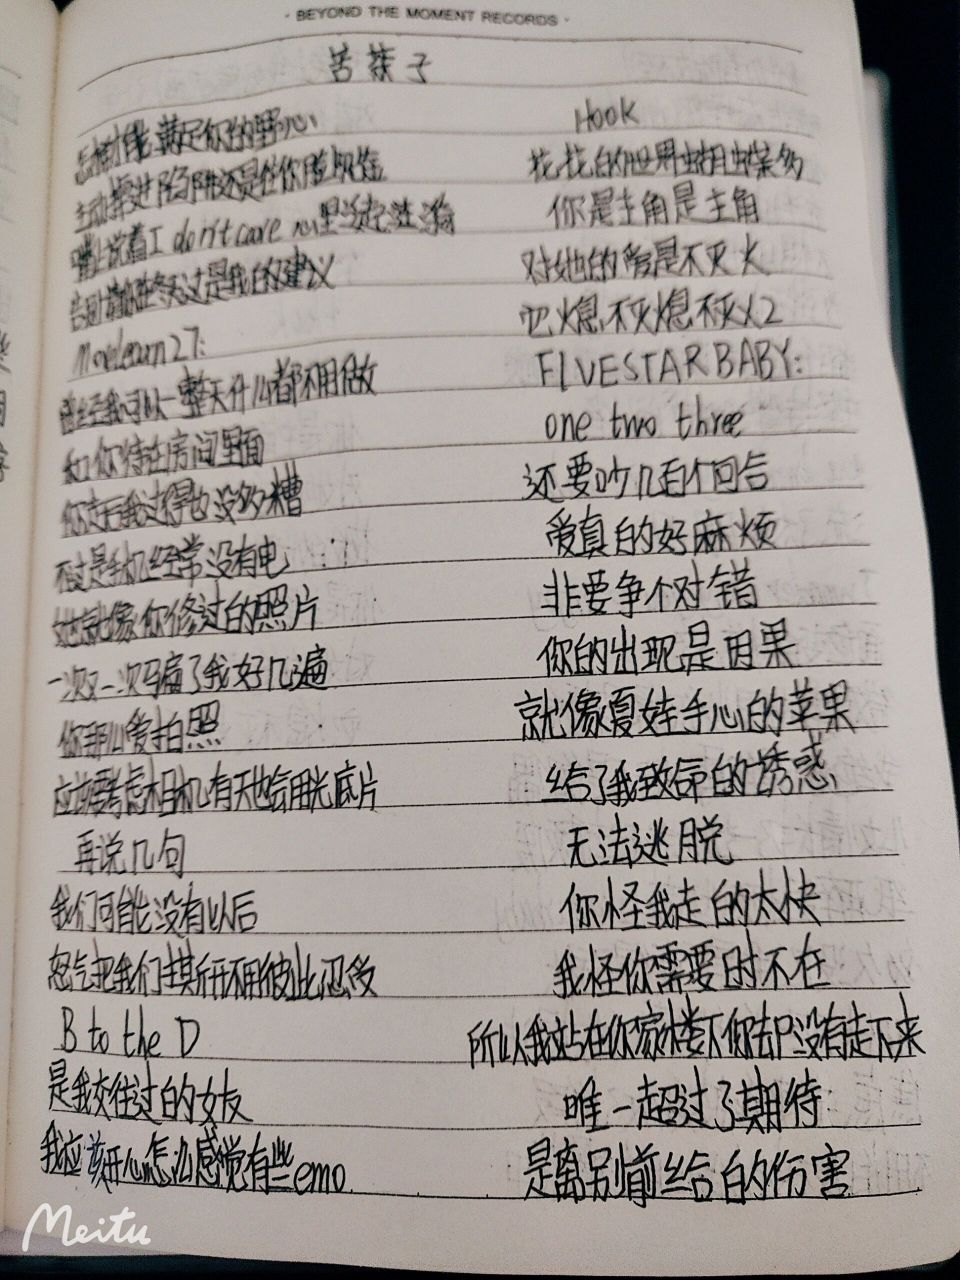 · BEYOND THE MOMENT RECORDS ·
苦茶子
怎样才能满足你的野心
主动掉进陷阱还是任你随风飘
嘴上说着I don't care 心里
告别
过是我的建议
27:
曾经我可以一整天什么都不用做
和你待在房间里面
你走后我过得也没多糟
不过是手机经常没有电
她就像你修过的照片
一次又一次骗了我好几遍
你那么爱拍照
应该要考虑相机有天也会用光底片
再说几句
我们可能没有以后
怒气把我们掰开不用彼此忍受
B to the D
是我交往过的女友
我应该开心怎么感觉有些emo
Hook
找找的世界
你是主角是主角
对她的爱是不灭火
也熄不灭熄不灭2
FIVESTARBABY:
one two three
还要吵几百个回合
爱真的好麻烦
非要争个对错
你的出现是因果
就像夏娃手心的苹果
给了我致命的诱惑
无法逃脱
你怪我走的太快
我怪你需要时不在
所以我站在你家楼下你却没有走下来
唯一超过了期待
是离别前给的伤害
Meitu